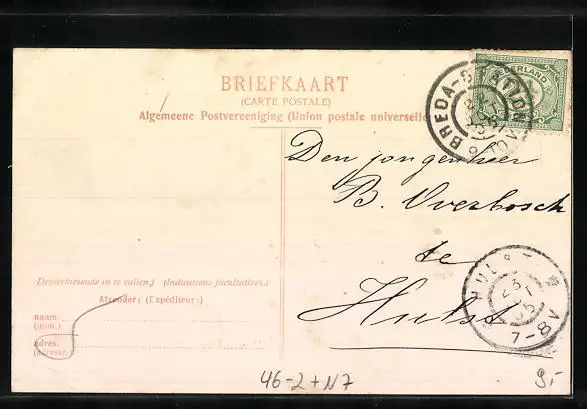 BRIEFKAART
(CARTE POSTALE)
Algemeene Postvereeniging (Union postale universelle
NEDERLAND
BREDA-
Den jongenheer
B. Overbosch
te
Hulst
HULST
23
7-8V
Desverkiezende in te vullen.) (Indications facultatives.)
Afzender: (Expéditeur:)
naam.
(nom.)
adres.
(adresse.)
46-2+N7
9,-